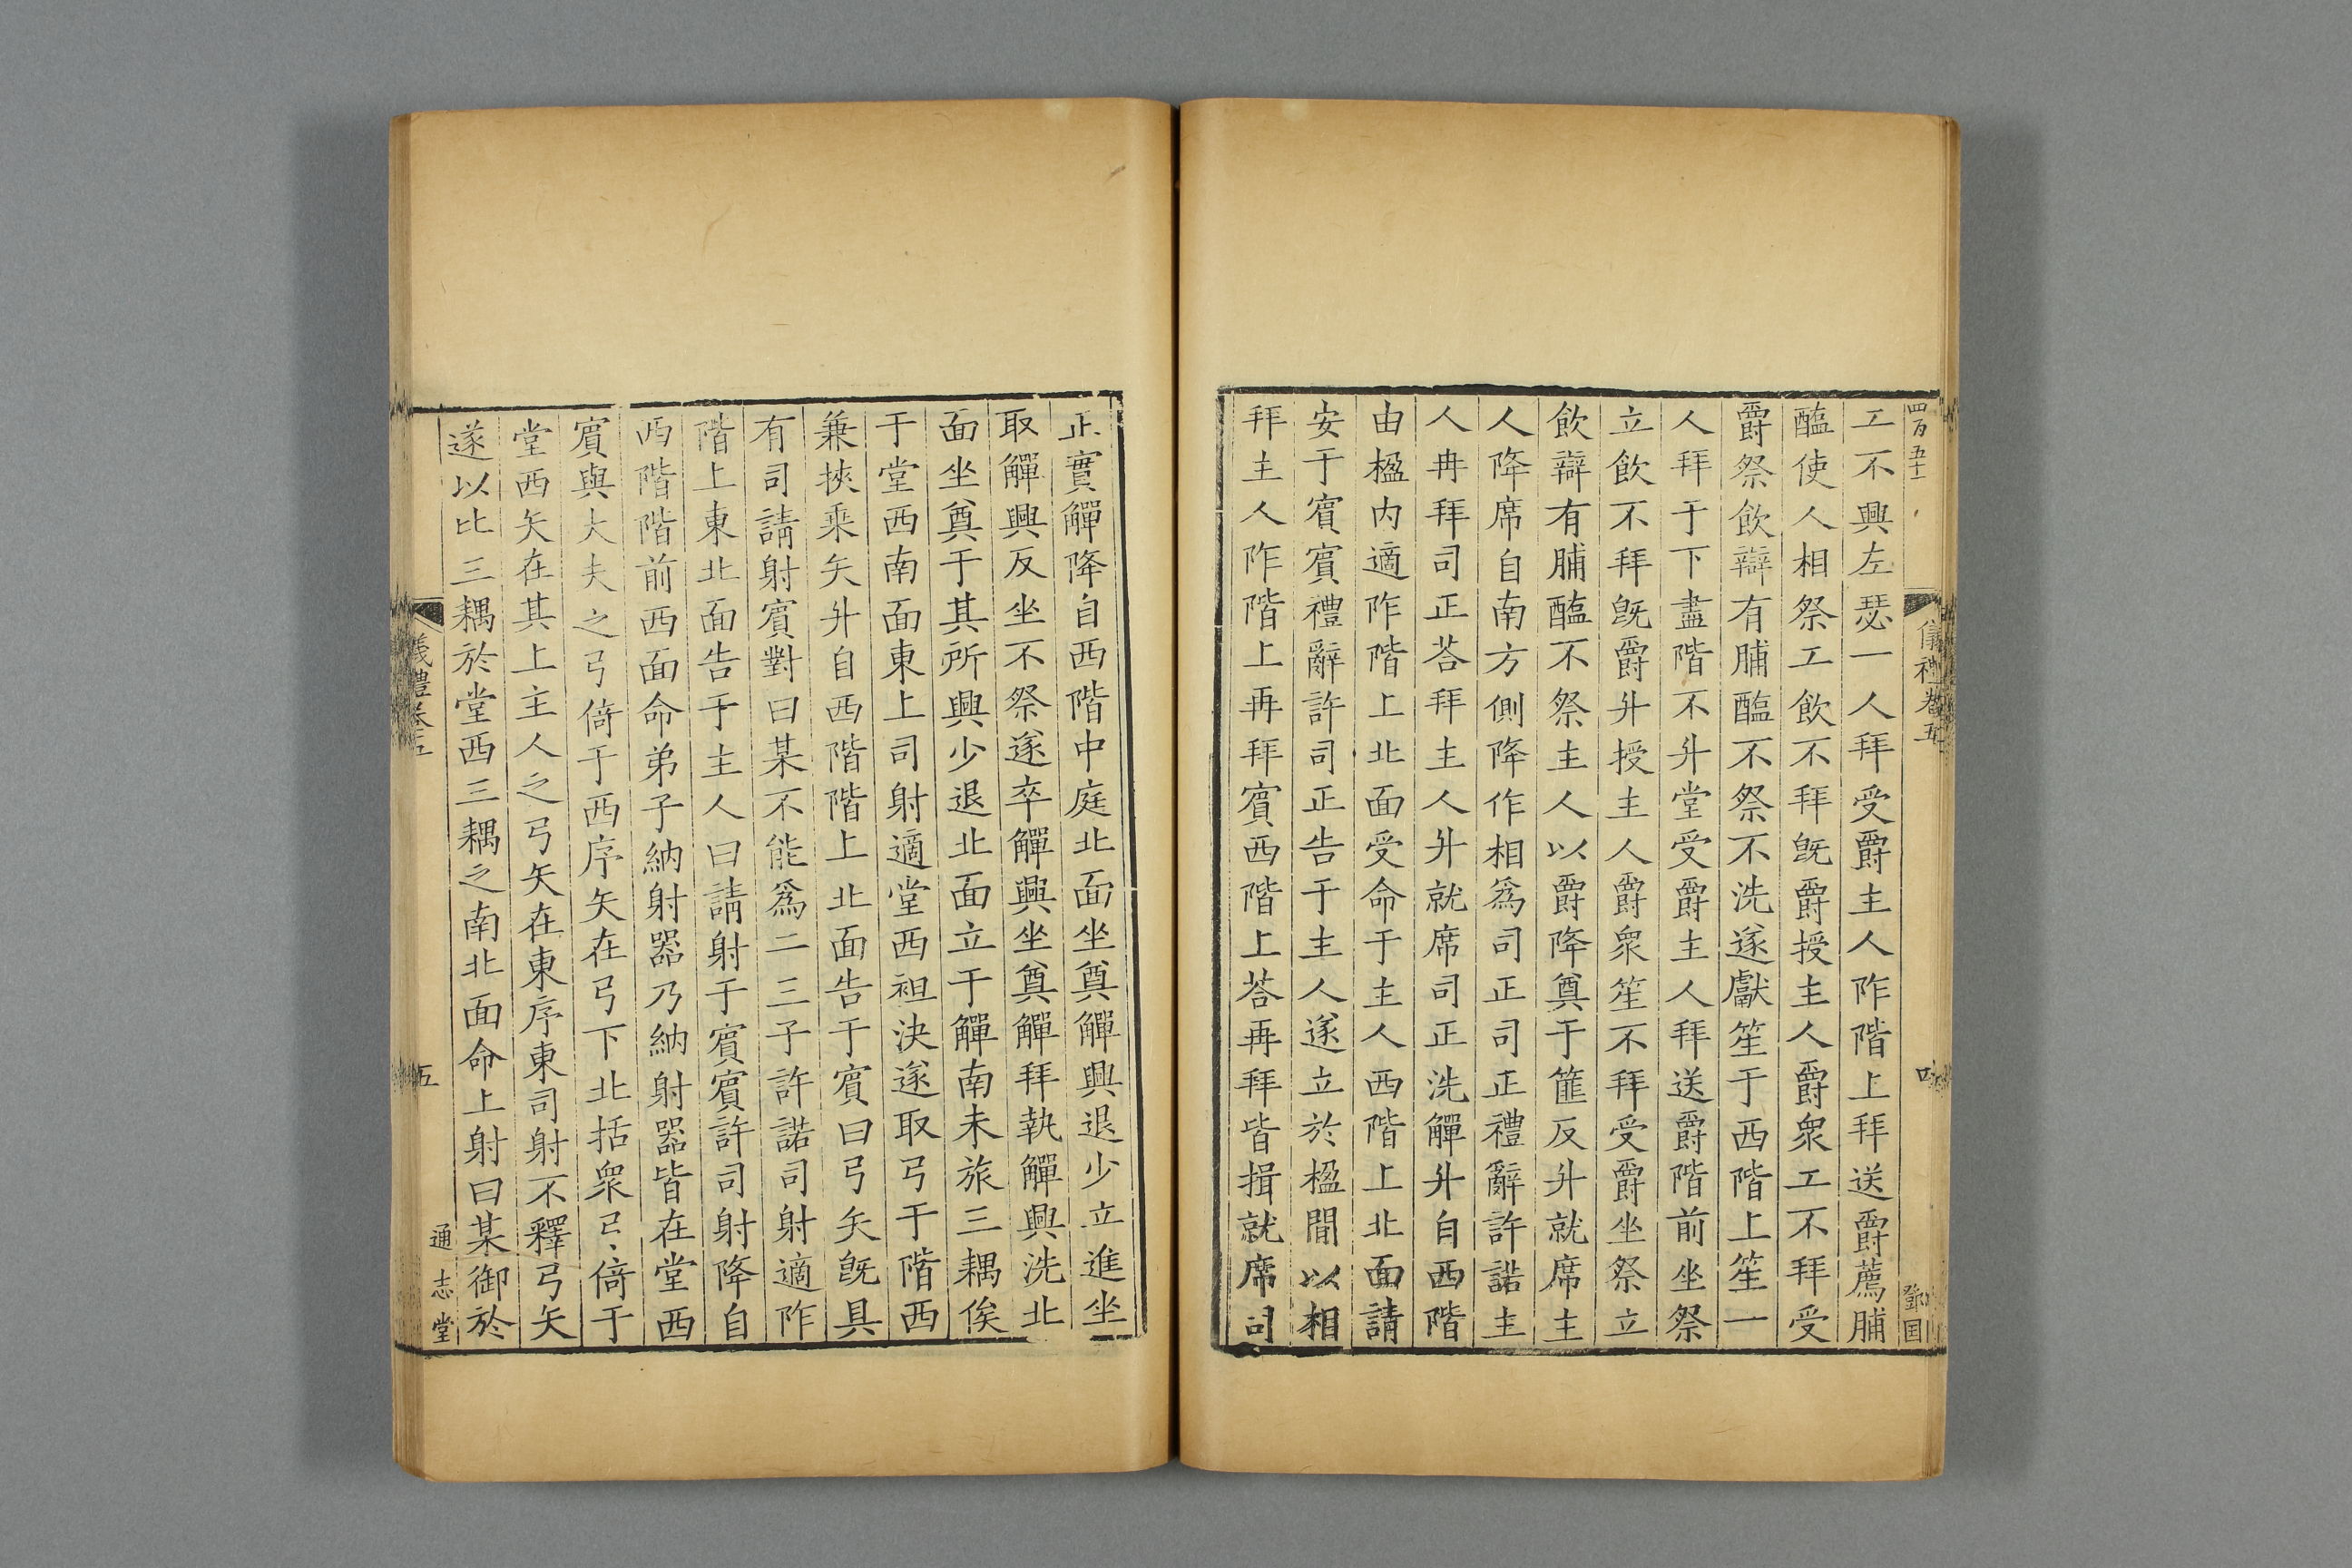 四百五十二
儀禮卷五
鄧国
工不興左瑟一人拜受爵主人阼階上拜送爵薦脯
醢使人相祭工飲不拜旣爵授主人爵衆工不拜受
爵祭飲辯有脯醢不祭不洗遂獻笙于西階上笙一
人拜于下盡階不升堂受爵主人拜送爵階前坐祭
立飲不拜旣爵升授主人爵衆笙不拜受爵坐祭立
飲辯有脯醢不祭主人以爵降奠于篚反升就席主
人降席自南方側降作相爲司正司正禮辭許諾主
人再拜司正荅拜主人升就席司正洗觶升自西階
由楹內適阼階上北面受命于主人西階上北面請
安于賓賓禮辭許司正告于主人遂立於楹間以相
拜主人阼階上再拜賓西階上荅再拜皆揖就席司
正實觶降自西階中庭北面坐奠觶興退少立進坐
取觶興反坐不祭遂卒觶興坐奠觶拜執觶興洗北
面坐奠于其所興少退北面立于觶南未旅三耦俟
于堂西南面東上司射適堂西袒決遂取弓于階西
兼挾乘矢升自西階階上北面告于賓曰弓矢旣具
有司請射賓對曰某不能爲二三子許諾司射適阼
階上東北面告于主人曰請射于賓賓許司射降自
西階階前西面命弟子納射器乃納射器皆在堂西
賓與大夫之弓倚于西序矢在弓下北括衆弓倚于
堂西矢在其上主人之弓矢在東序東司射不釋弓矢
遂以比三耦於堂西三耦之南北面命上射曰某御於
儀禮卷五
五
通志堂